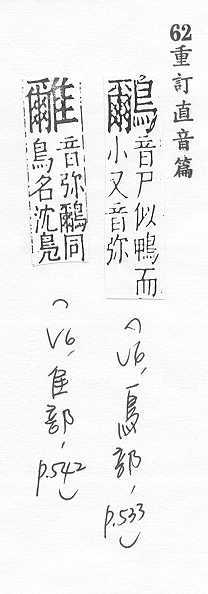 62重訂直音篇
鸍音尸似鴨而
小又音弥
(V6,鳥部,p.533)
音弥鸍同
鳥名沈鳧
(V6,隹部,p.542)